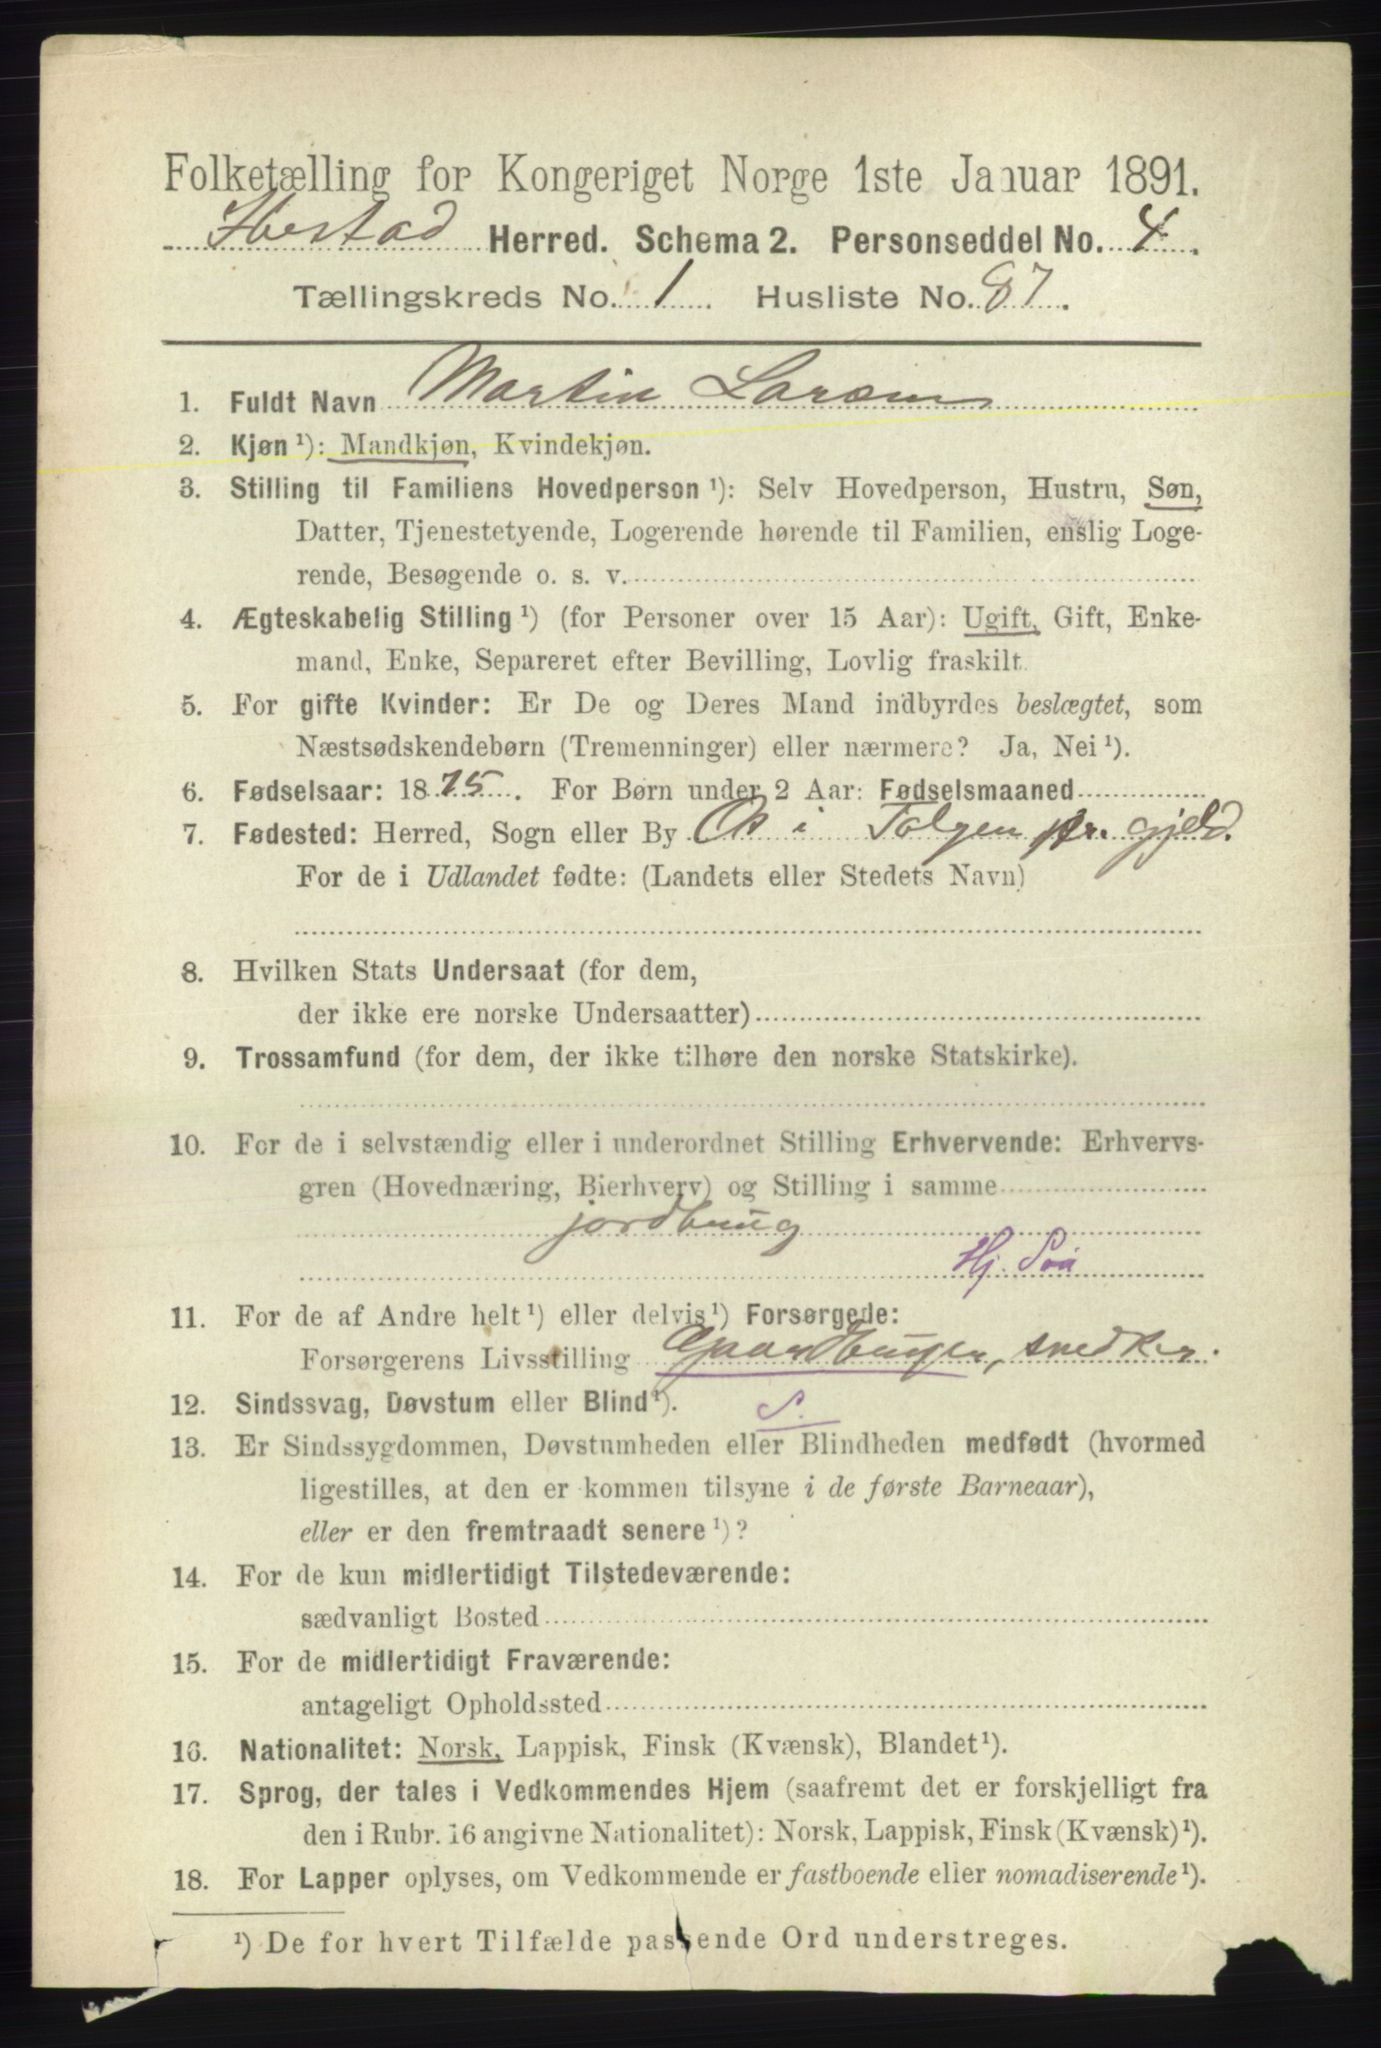 Folketælling for Kongeriget Norge 1ste Januar 1891.
Ibestad Herred. Schema 2. Personseddel No. 4.
Tællingskreds No. 1. Husliste No. 87.
1. Fuldt Navn Martin Larsen
2. Kjøn ¹): Mandkjøn, Kvindekjøn.
3. Stilling til Familiens Hovedperson ¹): Selv Hovedperson, Hustru, Søn,
Datter, Tjenestetyende, Logerende hørende til Familien, enslig Loge-
rende, Besøgende o. s. v.
4. Ægteskabelig Stilling ¹) (for Personer over 15 Aar): Ugift, Gift, Enke-
mand, Enke, Separeret efter Bevilling, Lovlig fraskilt.
5. For gifte Kvinder: Er De og Deres Mand indbyrdes beslægtet, som
Næstsødskendebørn (Tremenninger) eller nærmere? Ja, Nei ¹).
6. Fødselsaar: 1875. For Børn under 2 Aar: Fødselsmaaned
7. Fødested: Herred, Sogn eller By Os i Tolgen pr. gjeld.
For de i Udlandet fødte: (Landets eller Stedets Navn)
8. Hvilken Stats Undersaat (for dem,
der ikke ere norske Undersaatter)
9. Trossamfund (for dem, der ikke tilhøre den norske Statskirke).
10. For de i selvstændig eller i underordnet Stilling Erhvervende: Erhvervs-
gren (Hovednæring, Bierhverv) og Stilling i samme
jordbrug
Hj.
11. For de af Andre helt ¹) eller delvis ¹) Forsørgede:
Forsørgerens Livsstilling Gaardbruger, snedker.
12. Sindssvag, Døvstum eller Blind ¹). S.
13. Er Sindssygdommen, Døvstumheden eller Blindheden medfødt (hvormed
ligestilles, at den er kommen tilsyne i de første Barneaar),
eller er den fremtraadt senere ¹)?
14. For de kun midlertidigt Tilstedeværende:
sædvanligt Bosted
15. For de midlertidigt Fraværende:
antageligt Opholdssted
16. Nationalitet: Norsk, Lappisk, Finsk (Kvænsk), Blandet ¹).
17. Sprog, der tales i Vedkommendes Hjem (saafremt det er forskjelligt fra
den i Rubr. 16 angivne Nationalitet): Norsk, Lappisk, Finsk (Kvænsk) ¹).
18. For Lapper oplyses, om Vedkommende er fastboende eller nomadiserende ¹).
¹) De for hvert Tilfælde passende Ord understreges.